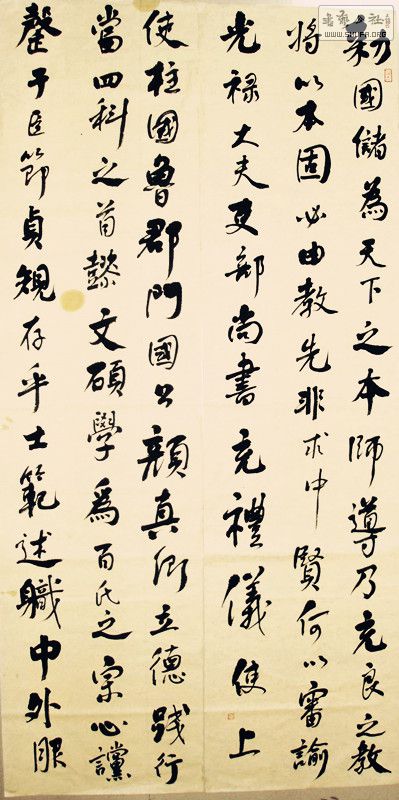 WWW.SHUFA.ORG
敕國儲為天下之本師導乃充良之教
將以本固必由教先非求中賢何以審諭
光祿大夫吏部尚書充禮儀使上
使柱國魯郡門國公顏真卿立德踐行
當四科之首懿文碩學爲百氏之宗心讜
罄于臣節貞規存乎士範述職中外服